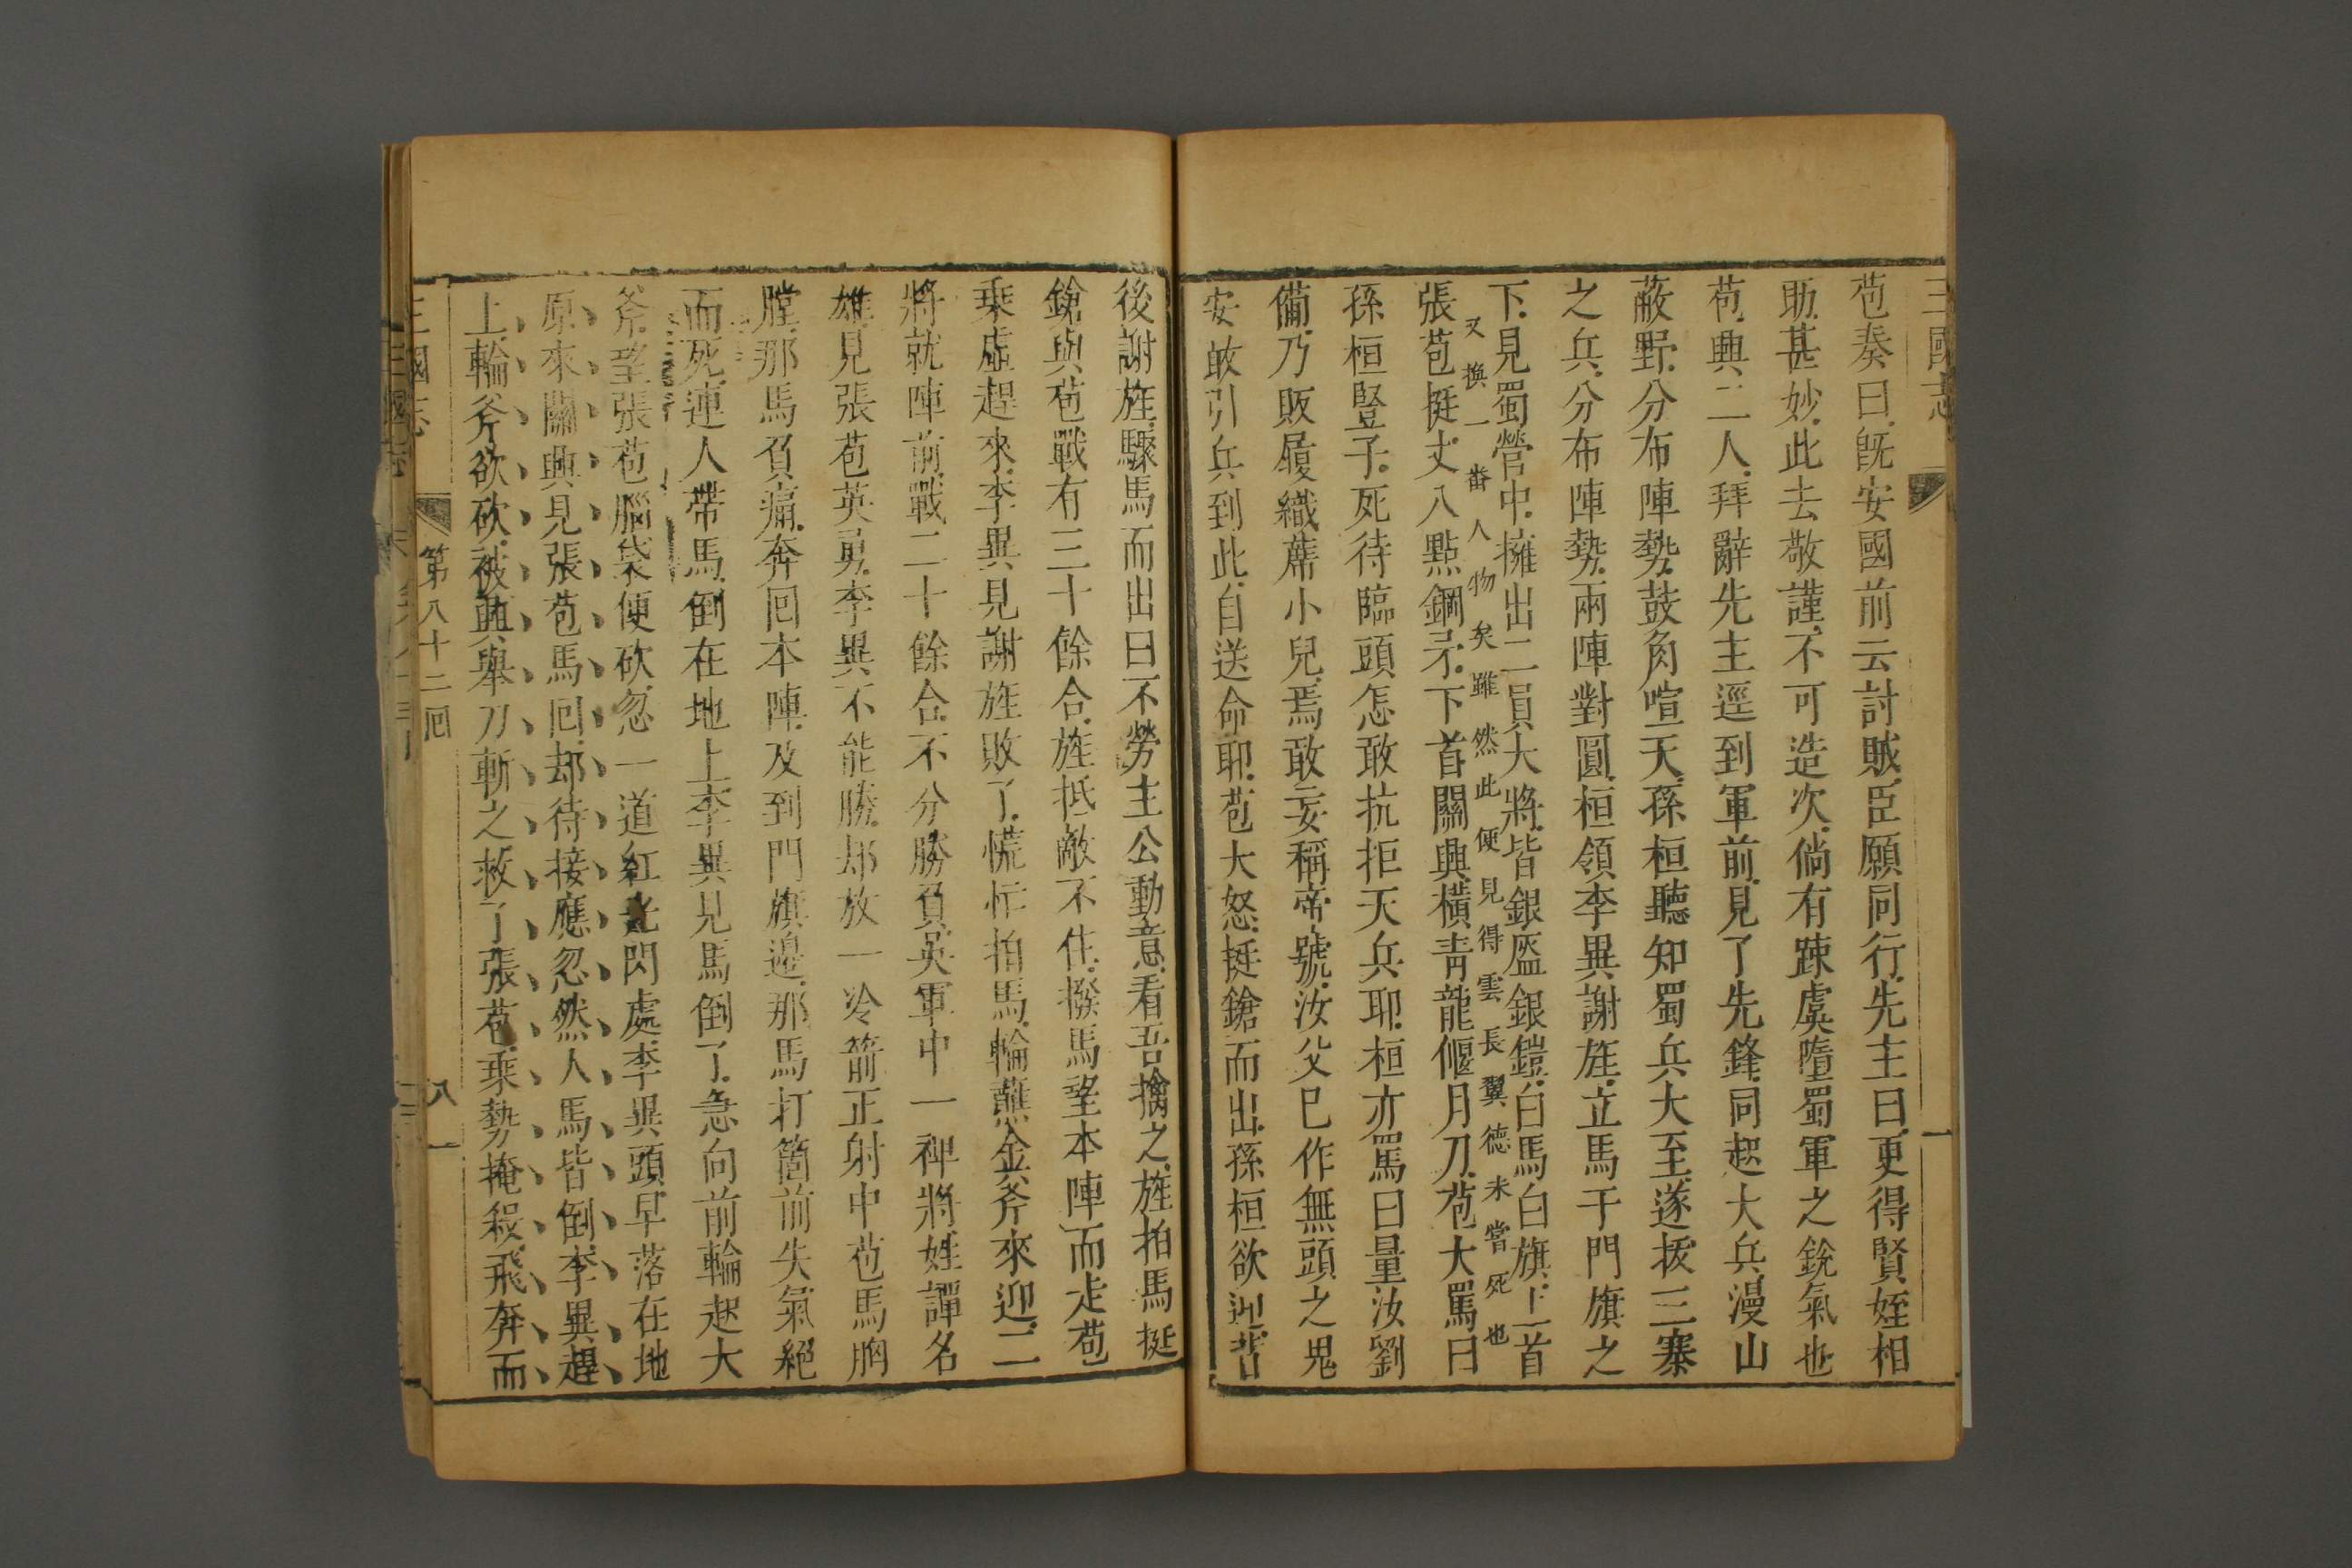 三國志
苞奏曰旣安國前云討賊臣願同行先主曰更得賢姪相
助甚妙此去敬謹不可造次倘有踈虞墮蜀軍之銳氣也
苞興二人拜辭先主逕到軍前見了先鋒同起大兵漫山
蔽野分布陣勢鼓角喧天孫桓聽知蜀兵大至遂拨三寨
之兵分布陣勢兩陣對圓桓領李異謝旌立馬于門旗之
下見蜀營中擁出二員大將皆銀盔銀鎧白馬白旗上首
又換一番人物矣雖然此便見得雲長翼德未嘗死也
張苞挺丈八點鋼矛下首關興橫青龍偃月刀苞大罵曰
孫桓豎子死待臨頭怎敢抗拒天兵耶桓亦罵曰量汝劉
備乃販履織蓆小兒焉敢妄稱帝號汝父已作無頭之鬼
安敢引兵到此自送命耶苞大怒挺鎗而出孫桓欲迎背
後謝旌驟馬而出曰不勞主公動意看吾擒之旌拍馬挺
鎗與苞戰有三十餘合旌抵敵不住撥馬望本陣而走苞
乘虛趕來李異見謝旌敗了慌忙拍馬輪蘸金斧來迎二
將就陣前戰二十餘合不分勝負吳軍中一裨將姓譚名
雄見張苞英勇李異不能勝却放一冷箭正射中苞馬胸
膛那馬負痛奔回本陣及到門旗邊那馬打箇前失氣絕
而死連人帶馬倒在地上李異見馬倒了急向前輪起大
斧望張苞腦袋便砍忽一道紅光閃處李異頭早落在地
原來關興見張苞馬回却待接應忽然人馬皆倒李異趕
上輪斧欲砍被興舉刀斬之救了張苞乘勢掩殺飛奔而
三國志
第八十二回
八